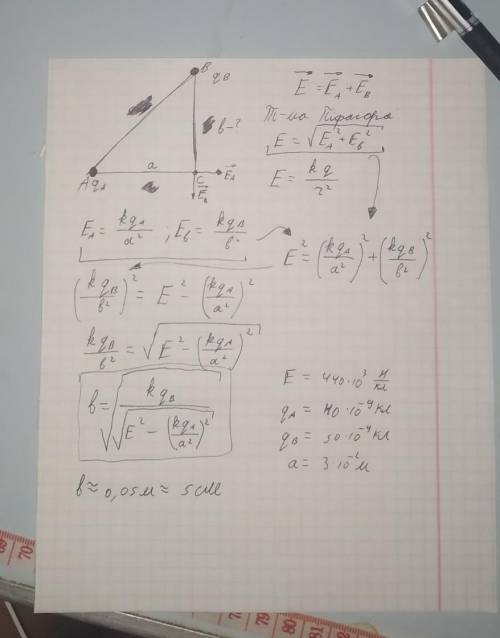 B
qB
в-?
a
A qA
C
E⃗A
E⃗B
E⃗ = E⃗A + E⃗B
Т-ма Пифагора
E = √(EA² + EB²)
E = kq/r²
EA = kqA/a² ; EB = kqB/в²
E² = (kqA/a²)² + (kqB/в²)²
(kqB/в²)² = E² - (kqA/a²)²
kqB/в² = √(E² - (kqA/a²)²)
в = √(kqB/√(E² - (kqA/a²)²))
в ≈ 0,05м ≈ 5см
E = 440·10³ Н/Кл
qA = 40·10⁻⁹ Кл
qB = 50·10⁻⁹ Кл
a = 3·10⁻² м
70